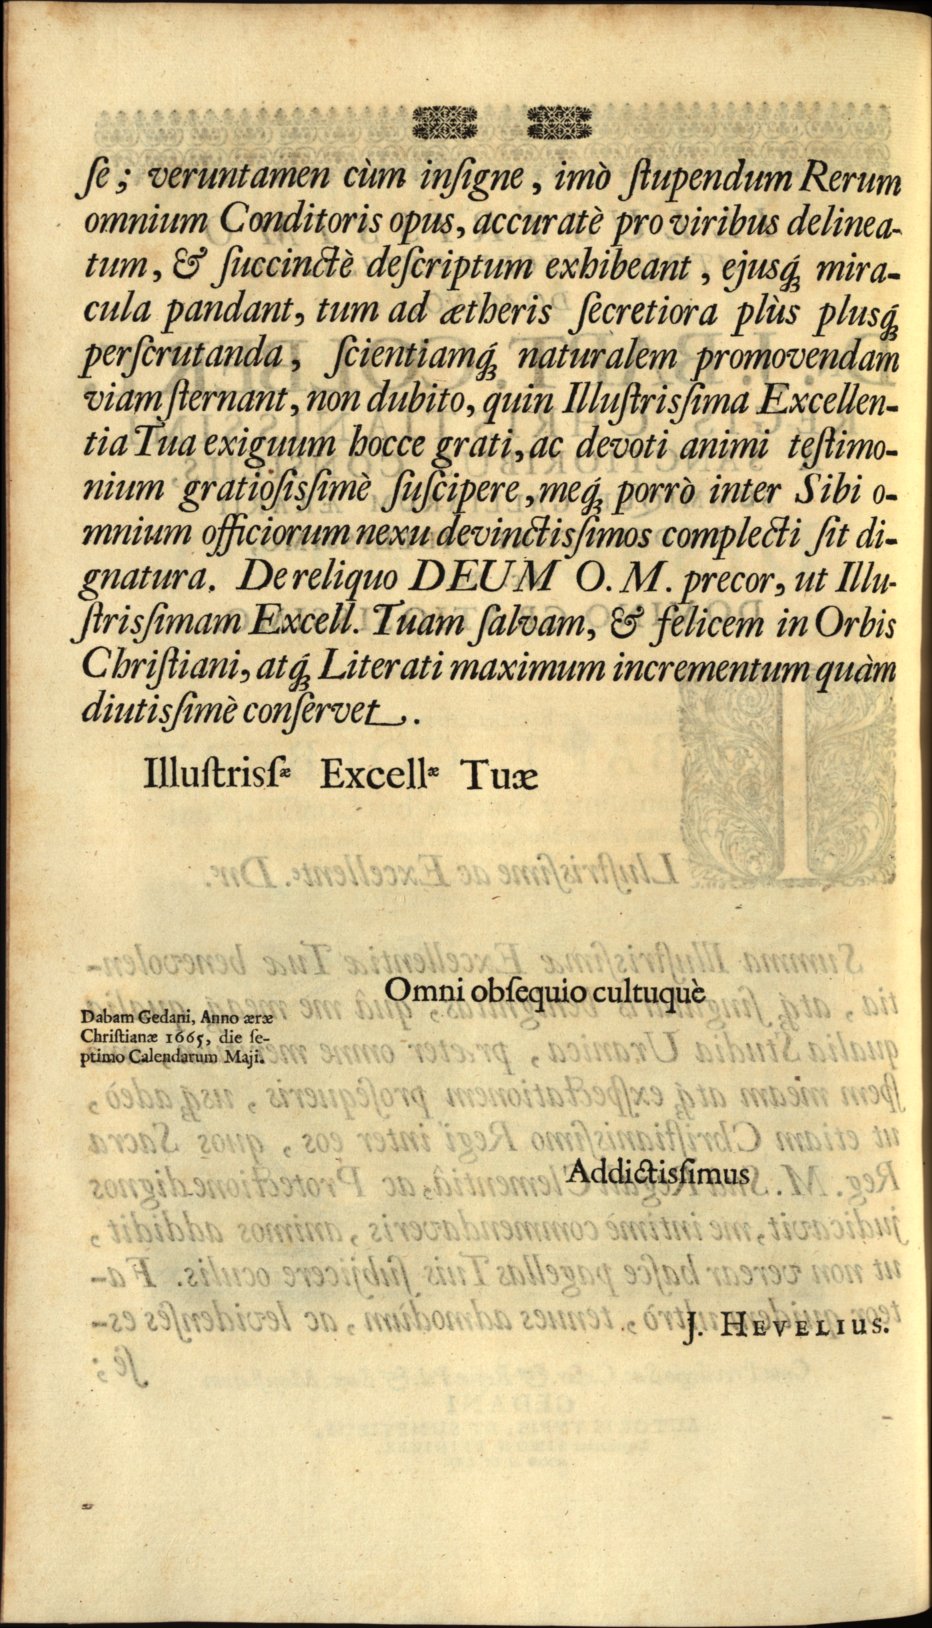 ſe; veruntamen cùm inſigne, imò ſtupendum Rerum
omnium Conditoris opus, accuratè pro viribus delinea-
tum, & ſuccinctè deſcriptum exhibeant, ejusq́ꝫ mira-
cula pandant, tum ad ætheris ſecretiora plùs plusq́ꝫ
perſcrutanda, ſcientiamq́ꝫ naturalem promovendam
viam ſternant, non dubito, quin Illuſtrisſima Excellen-
tia Tua exiguum hocce grati, ac devoti animi teſtimo-
nium gratiosisſimè ſuſcipere, meq́ꝫ porrò inter Sibi o-
mnium officiorum nexu devinctisſimos complecti ſit di-
gnatura. De reliquo DEUM O. M. precor, ut Illu-
ſtrisſimam Excell. Tuam ſalvam, & felicem in Orbis
Chriſtiani, atq́ꝫ Literati maximum incrementum quàm
diutisſimè conſervet.
Illuſtrisſæ Excellæ Tuæ
Omni obſequio cultuquè
Dabam Gedani, Anno æræ
Chriſtianæ 1665, die ſe-
ptimo Calendarum Maji.
Addictisſimus
J. HEVELIUS.